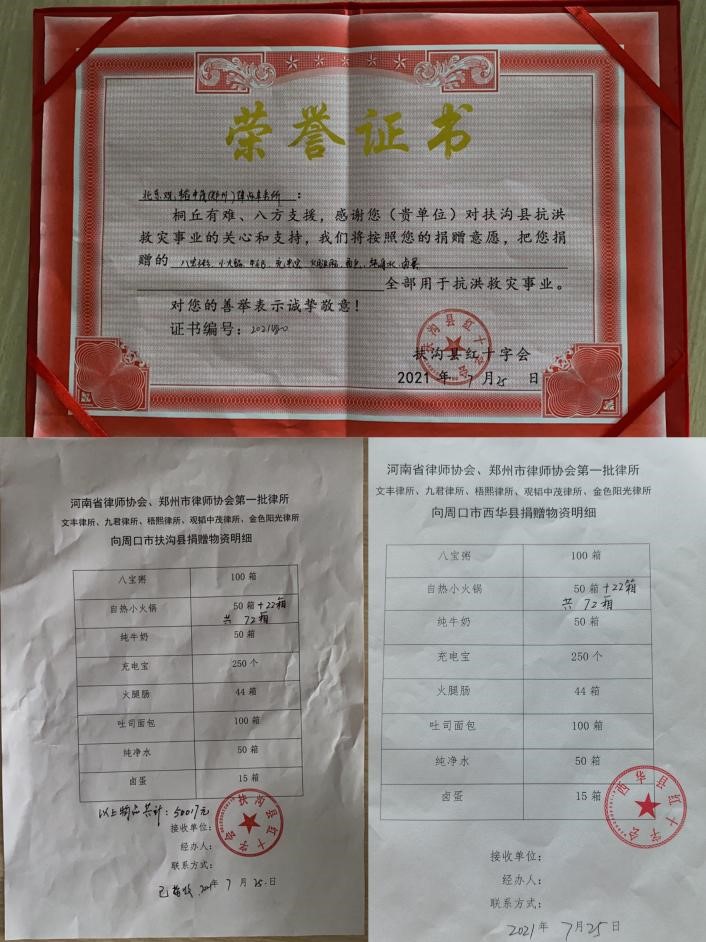 荣誉证书
北京观韬中茂(郑州)律师事务所：
桐丘有难、八方支援，感谢您（贵单位）对扶沟县抗洪
救灾事业的关心和支持，我们将按照您的捐赠意愿，把您捐
赠的 八宝粥、小火锅、牛奶、充电宝、火腿肠、面包、纯净水、卤蛋
全部用于抗洪救灾事业。
对您的善举表示诚挚敬意！
证书编号：
扶沟县红十字会
扶沟县红十字会
2021 年 7 月 25 日
河南省律师协会、郑州市律师协会第一批律所
文丰律所、九君律所、梧熙律所、观韬中茂律所、金色阳光律所
向周口市扶沟县捐赠物资明细
八宝粥 100 箱
自热小火锅 50 箱 +22箱
共 72箱
纯牛奶 50 箱
充电宝 250 个
火腿肠 44 箱
吐司面包 100 箱
纯净水 50 箱
卤蛋 15 箱
以上物品共计：50017元
扶沟县红十字会
接收单位：
经办人：
联系方式：
已签收 2021年 7 月 25 日
河南省律师协会、郑州市律师协会第一批律所
文丰律所、九君律所、梧熙律所、观韬中茂律所、金色阳光律所
向周口市西华县捐赠物资明细
八宝粥 100 箱
自热小火锅 50 箱 +22箱
共 72箱
纯牛奶 50 箱
充电宝 250 个
火腿肠 44 箱
吐司面包 100 箱
纯净水 50 箱
卤蛋 15 箱
西华县红十字会
接收单位：
经办人：
联系方式：
2021年 7月25日